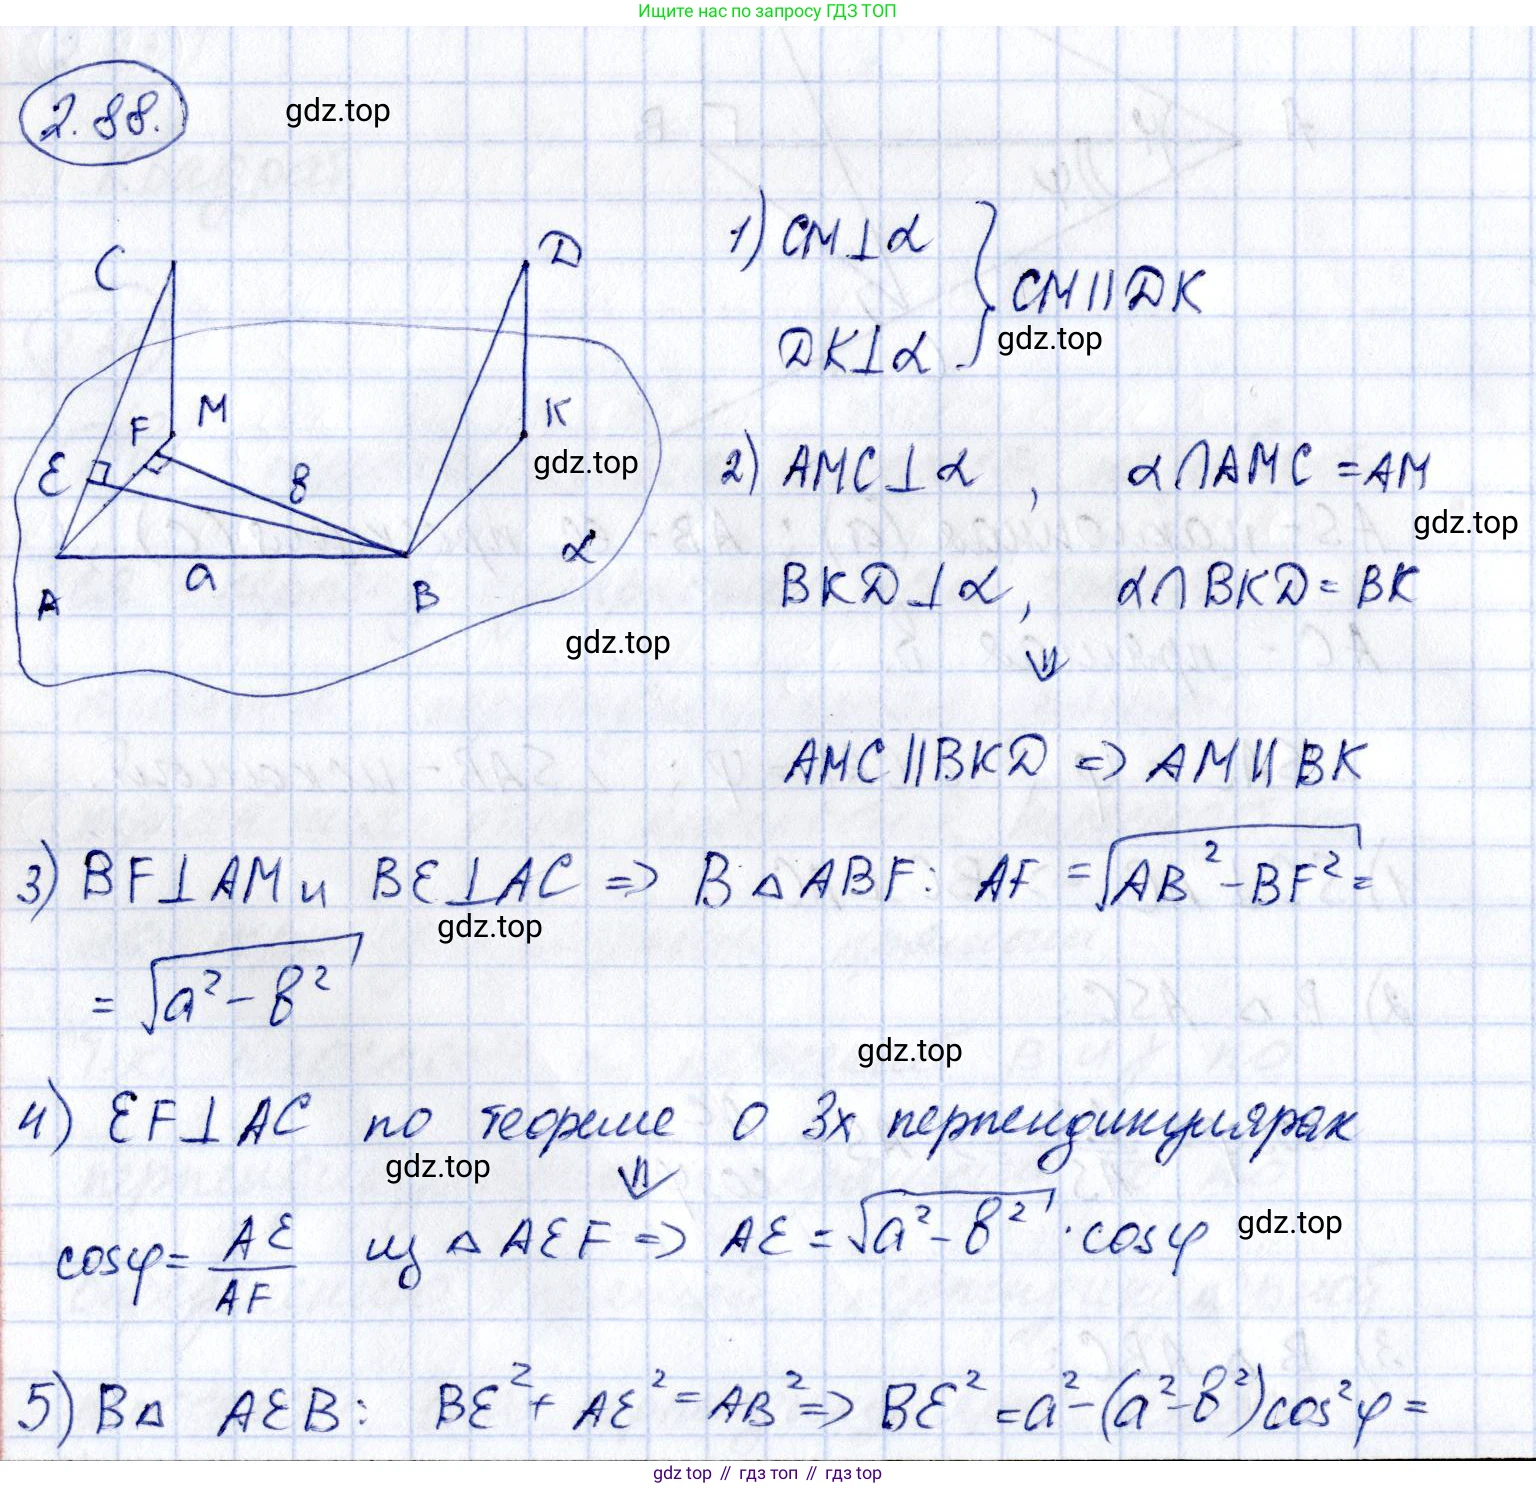 Ищите нас по запросу ГДЗ ТОП
2.88.
gdz.top
C
D
M
F
K
E
в
a
A
B
α
gdz.top
gdz.top
1) CM⊥α
DK⊥α
} CM∥DK
gdz.top
2) AMC⊥α, α∩AMC=AM
gdz.top
BKD⊥α, α∩BKD=BK
⇓
AMC∥BKD ⇒ AM∥BK
3) BF⊥AM и BE⊥AC ⇒ В △ABF: AF = √(AB²-BF²) =
gdz.top
= √(a²-в²)
gdz.top
4) EF⊥AC по теореме о 3х перпендикулярах
gdz.top
⇓
cosφ = AE/AF из △AEF ⇒ AE = √(a²-в²) · cosφ
gdz.top
5) В △ AEB: BE²+AE²=AB² ⇒ BE²=a²-(a²-в²)cos²φ =
gdz top // гдз топ // гдз top